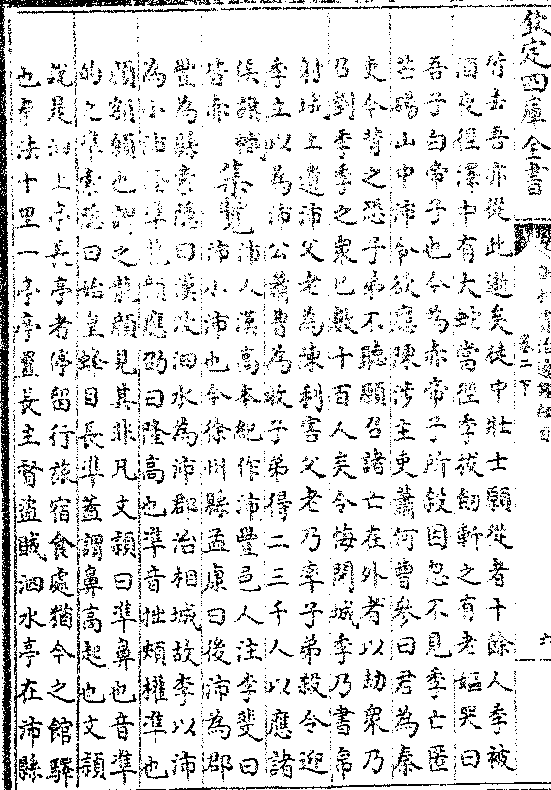 欽定四庫全書
卷二下
皆去吾亦從此逝矣徒中壯士願從者十餘人季被
酒夜徑澤中有大蛇當徑季拔劒斬之有老嫗哭曰
吾子白帝子也今為赤帝子所殺因忽不見季亡匿
芒碭山中沛令欲應陳涉主吏蕭何曹參曰君為秦
吏今背之恐子弟不聽願召諸亡在外者以劫衆乃
召劉季季之衆已數十百人矣令悔閉城季乃書帛
射城上遺沛父老為陳利害父老乃率子弟殺令迎
季立以為沛公蕭曹為收子弟得二三千人以應諸
侯旗幟皆赤
集覽
沛人漢高本紀作沛豐邑人注李斐曰
沛小沛也今徐州縣孟康曰後沛為郡
豐為縣索隱曰漢改泗水為沛郡治相城故李以沛
為小沛隆準龍顔應劭曰隆高也準音拙頰權準也
顔額顙也謂之龍顔見其非凡文頴曰準鼻也音準
的之準索隱曰始皇蜂目長準蓋謂鼻高起也文頴
說是泗上亭長亭者停留行旅宿食處猶今之館驛
也秦法十里一亭亭置長主督盜賊泗水亭在沛縣